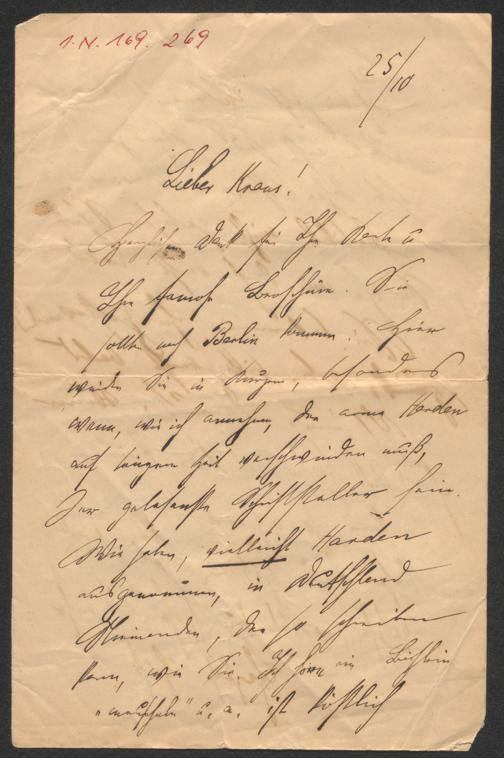 I. N. 169. 269
25/10
Lieber Kraus!
Herzlichen Dank für Ihre Karte u
Ihre famose Broschüre. Sie
sollten nach Berlin kommen. Hier
werden Sie in Kurzem, besonders
wenn, wie ich annehme, der arme Harden
auf längere Zeit verschwinden muß,
der gelesenste Schriftsteller sein.
Wir haben, vielleicht Harden
ausgenommen, in Deutschland
Niemanden, der so schreiben
kann, wie Sie. Ihr
"mauscheln" u. a. ist köstlich